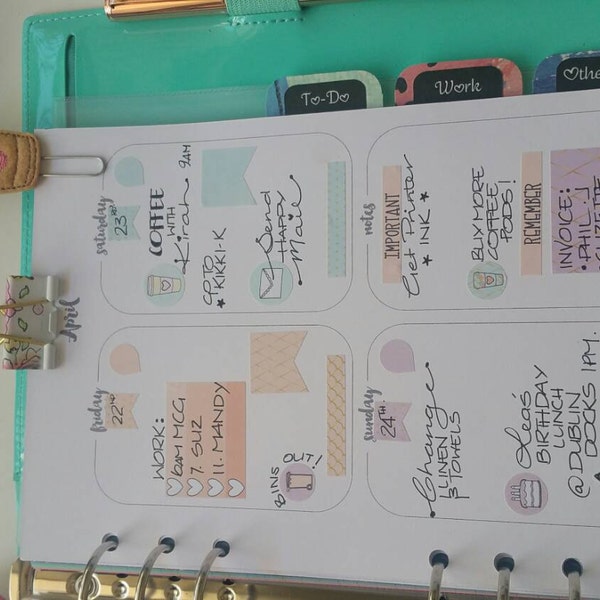 To-Do
Work
Othe
April
friday
22nd
WORK:
6AM MCG
7. SUZ
11. MANDY
BINS OUT!
saturday
23rd
COFFEE
WITH
Kirah 9AM
GO TO
KIKKI-K
Send
HAPPY
Mail
sunday
24TH
Change
LINEN
& TOWELS
Lea's
BIRTHDAY
LUNCH
@DUBLIN
DOCKS 1PM.
notes
IMPORTANT
Get Printer
INK
BUY MORE
COFFEE
PODS!
REMEMBER
INVOICE:
PHIL
SUZETTE